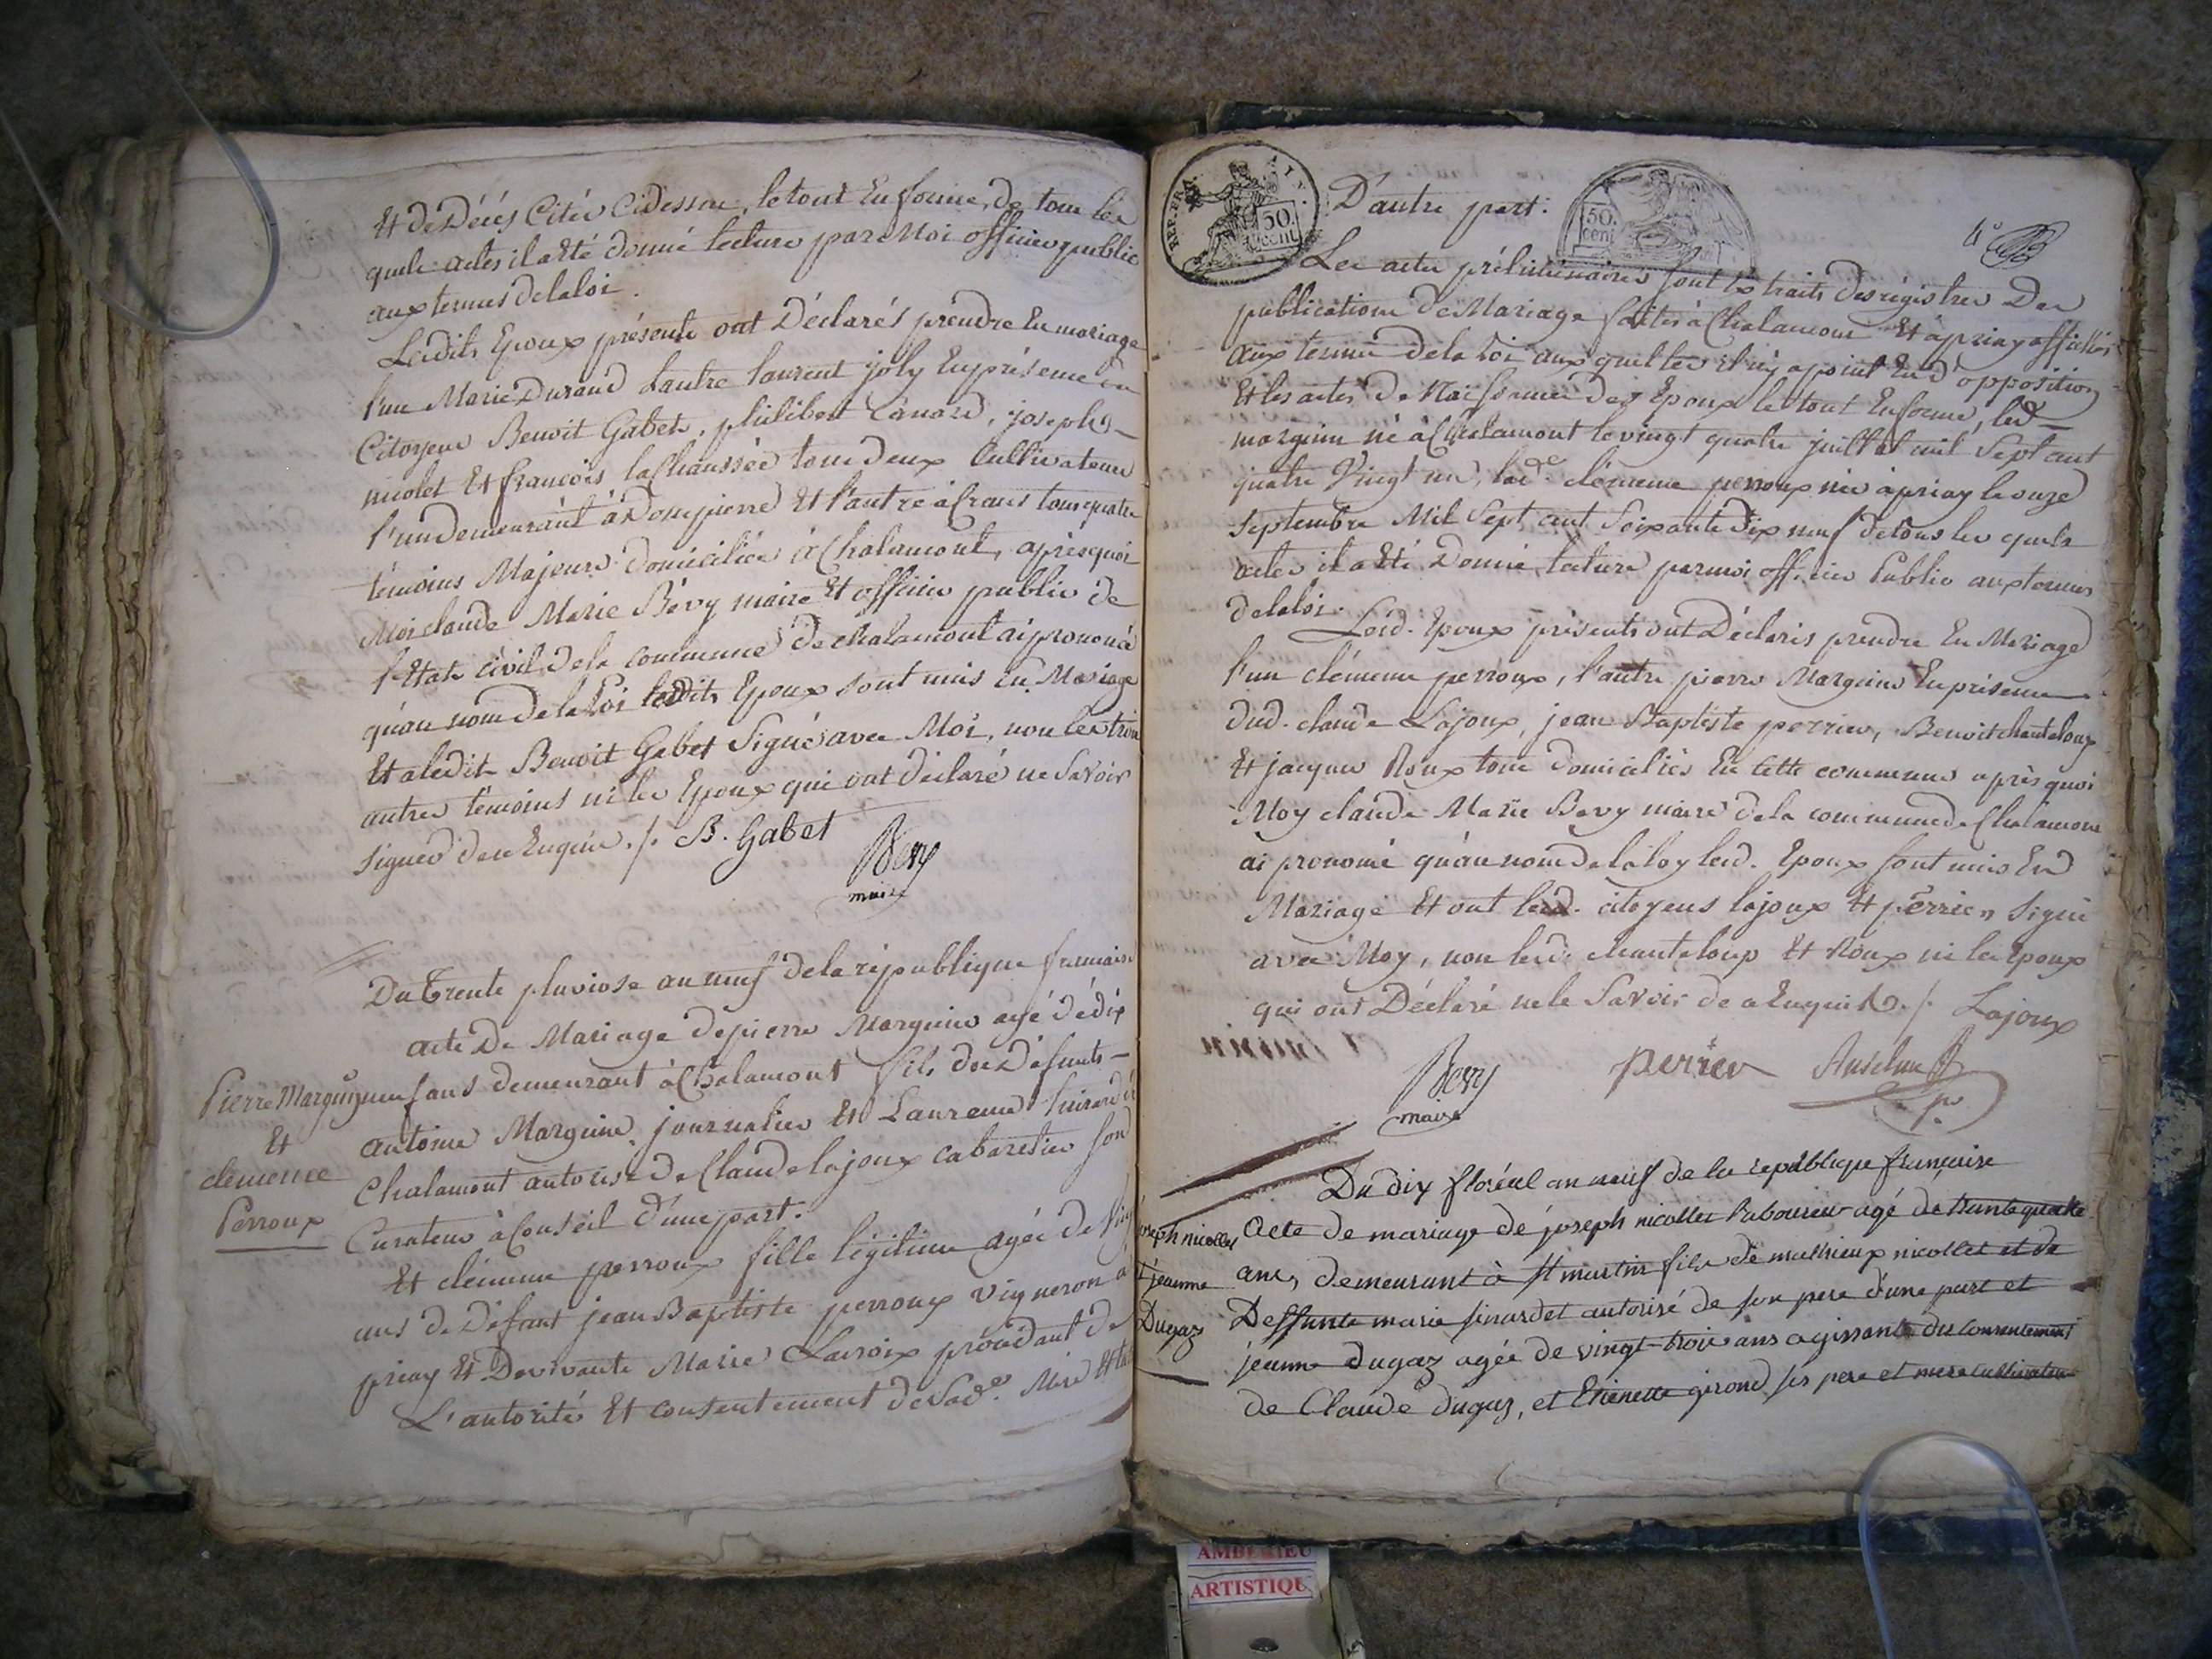 Et de Décès Cités Cidessus, le tout En forme, de tous les
quels actes il a Eté donné lecture par Moi officier public
aux termes de la loi.
Lesdits Epoux présents ont Déclarés prendre En mariage
l'un Marie Durand L'autre laurent joly En présence des
Citoyens Benoit Gabet, philibert Canard, joseph
nicolet Et françois lachaussée tous deux Cultivateurs
l'un demeurant à Dompierre Et l'autre à Crans tous quatre
témoins Majeurs domiciliés à Chalamont, après quoi
Moi claude Marie Bévy maire Et officier public de
l'Etat civil de la commune de chalamont ai prononcé
qu'au nom de la Loi lesdits Epoux sont unis En Mariage
Et a ledit Benoit Gabet Signé avec Moi, non les trois
autres témoins ni les Epoux qui ont déclaré ne Savoir
signer de ce Enquis ./. B. Gabet
Bevy
maire
Du Trente pluviose an neuf de la république francaise
acte De Mariage de pierre Marguin agé de dix
neuf ans demeurant à Chalamont fils des Défunts
antoine Marguin journalier Et Laurence
Chalamont autorisé de Claude lajoux cabaretier son
Curateur à Conseil d'une part.
Et clémence perroux fille légitime agée de
ans de Défunt jean Baptiste perroux vigneron a
priay Et De vivante Marie Lacroix procédant de
L'autorité Et consentement de Sad.e Mère
Pierre Marguin
Et
clemence
Perroux
REP. FRA.
50.
cent.
50.
cent.
D'autre part.
4e
Les actes préliminaires sont Extraits des régistres Des
publications de Mariage faites à Chalamont Et à priay affichés
aux termes de la loi aux quelles il n'y a point Eu d'opposition
Et les actes de Naissance des Epoux le tout En forme, led.
marguin né à Chalamont le vingt quatre juillet mil Sept cent
quatre Vingt un, lad.e clémence perroux née à priay le onze
Septembre Mil Sept cent Soixante dix neuf de tous les quels
actes il a Eté Donné lecture par moi officier Public aux termes
de la loi.
Lesd. Epoux présents ont Déclarés prendre En Mariage
l'un clémence perroux, l'autre pierre Marguin En présence
dud. claude Lajoux, jean Baptiste perrier, Benoit chanteloup
Et jacques Roux tous domiciliés En cette commune après quoi
Moy claude Marie Bevy maire de la commune de Chalamont
ai prononcé qu'au nom de la loy lesd. Epoux sont unis En
Mariage Et ont lesd. citoyens lajoux Et perrier Signé
avec Moy, non lesd. chanteloup Et Roux ni les Epoux
qui ont Déclaré ne le Savoir de ce Enquis ./. Lajoux
Bevy
maire
perrier
Anselme
Du dix floréal an neuf de la republique française
Acte de mariage de joseph nicollet laboureur agé de trente quatre
ans, demeurant à St martin fils de mathieux nicollet et de
Deffunte marie sinardet autorisé de son pere d'une part et
jeanne dugaz agée de vingt trois ans agissante du consentement
de Claude dugaz, et Etienette girond ses pere et mere cultivateurs
joseph nicollet
Et jeanne
Dugaz
AMBERIEU
ARTISTIQU